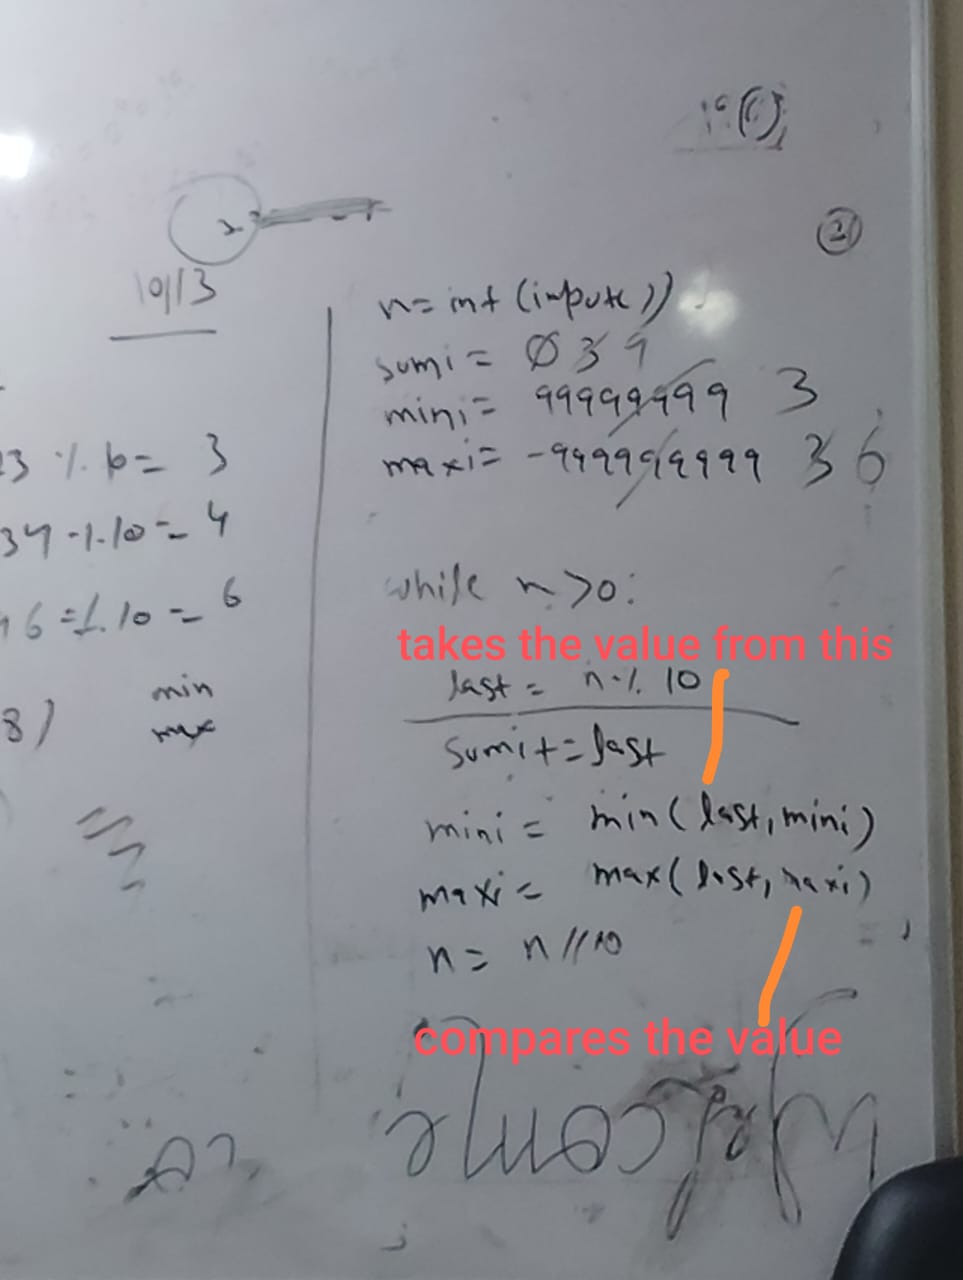 10//3
23 % 10 = 3
34 % 10 = 4
46 = % 10 = 6
8)
min
max
2
n = int (impute))
sumi = 0 3 9
mini = 99999999 3
maxi = -999999999 3 6
while n > 0:
takes the value from this
last = n % 10
sumi += last
mini = min(last, mini)
maxi = max(last, maxi)
n = n // 10
compares the value